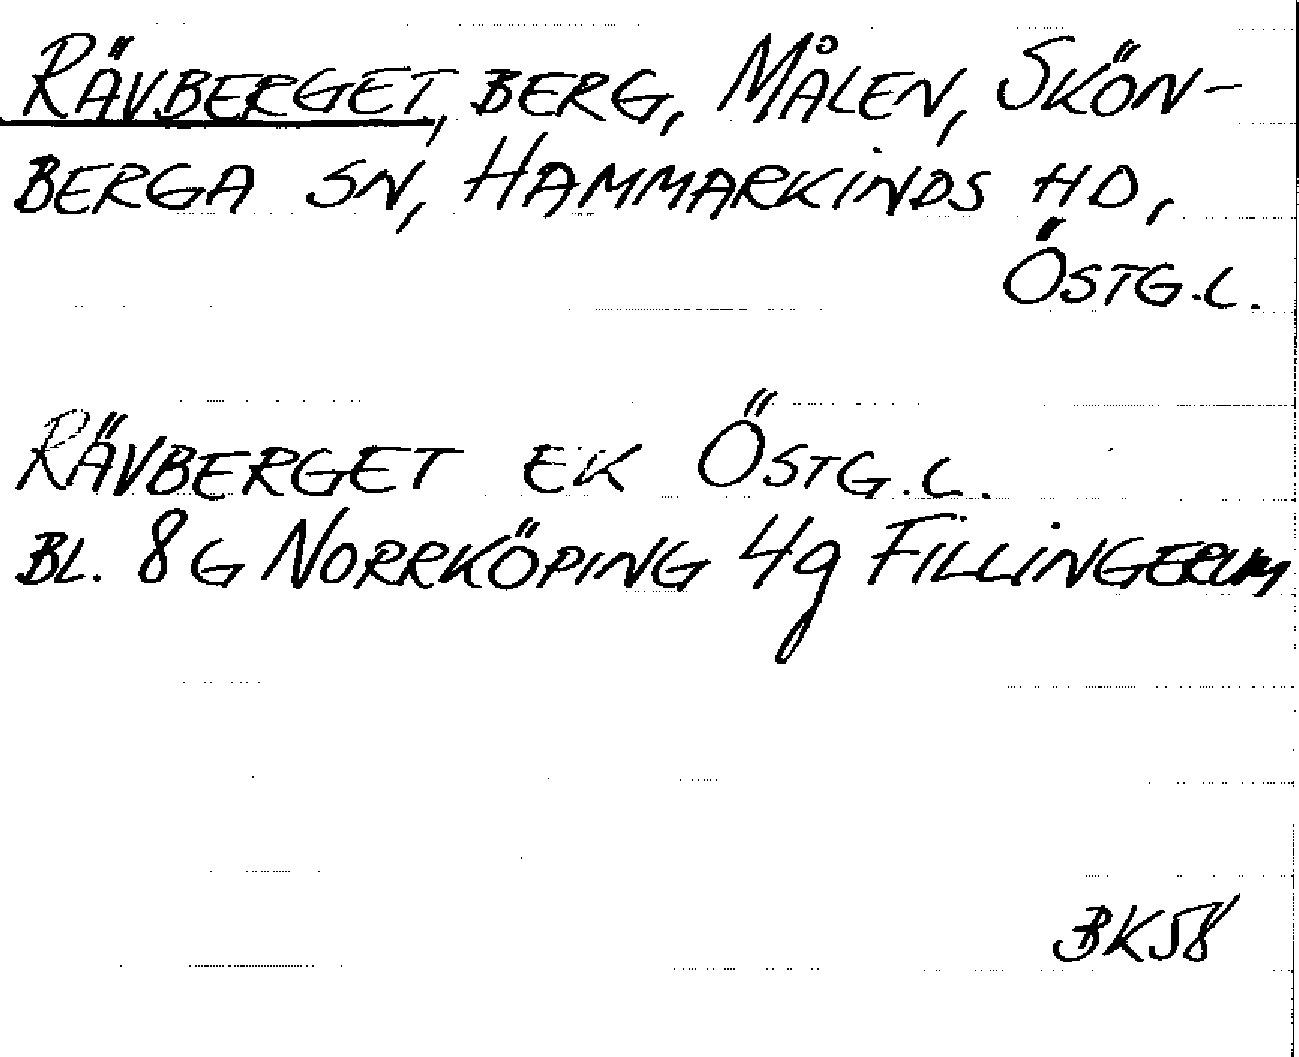 RÄVBERGET, BERG, MÅLEN, SKÖN-
BERGA SN, HAMMARKINDS HD,
ÖSTG.L.
RÄVBERGET EK ÖSTG.L.
BL. 8G NORRKÖPING 4g FILLINGERUM
BK58